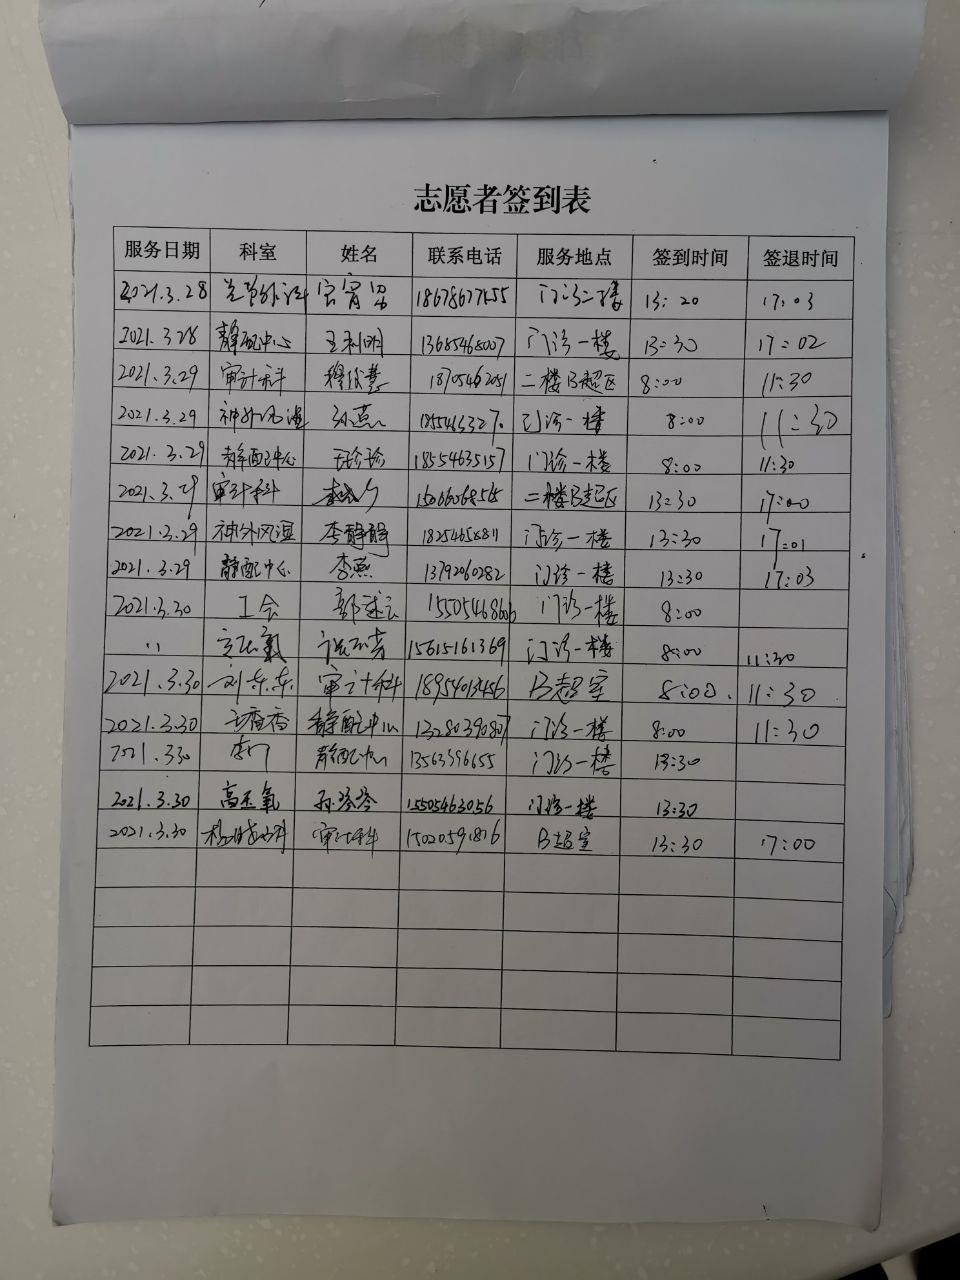 志愿者签到表
服务日期 科室 姓名 联系电话 服务地点 签到时间 签退时间
2021.3.28 18678677555 门诊二楼 13:20 17:03
2021.3.28 静配中心 王利明 13685468007 门诊一楼 13:30 17:02
2021.3.29 审计科 18705462051 二楼B超区 8:00 11:30
2021.3.29 神外风湿 门诊一楼 8:00 11:30
2021.3.29 静配中心 18554635157 门诊一楼 8:00 11:30
2021.3.29 审计科 二楼B超区 13:30 17:00
2021.3.29 神外风湿 李静静 门诊一楼 13:30 17:01
2021.3.29 静配中心 李燕 13792060282 门诊一楼 13:30 17:03
2021.3.30 工会 门诊一楼 8:00
〃 15615161369 门诊一楼 8:00 11:30
2021.3.30 刘东东 审计科 18954013456 B超室 8:00. 11:30
2021.3.30 王香香 静配中心 13280390807 门诊一楼 8:00 11:30
2021.3.30 静配中心 13563396655 门诊一楼 13:30
2021.3.30 高压氧 15505463056 门诊一楼 13:30
2021.3.30 审计科 15020591816 B超室 13:30 17:00